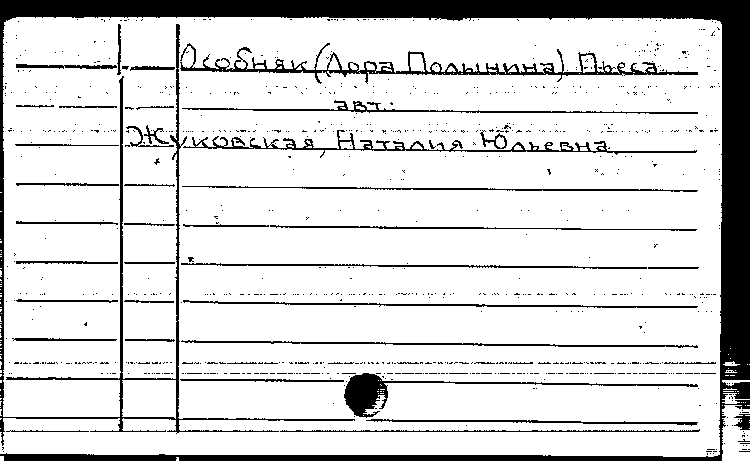 Особняк (Лора Полынина) Пьеса
авт.:
Жуковская, Наталия Юльевна.